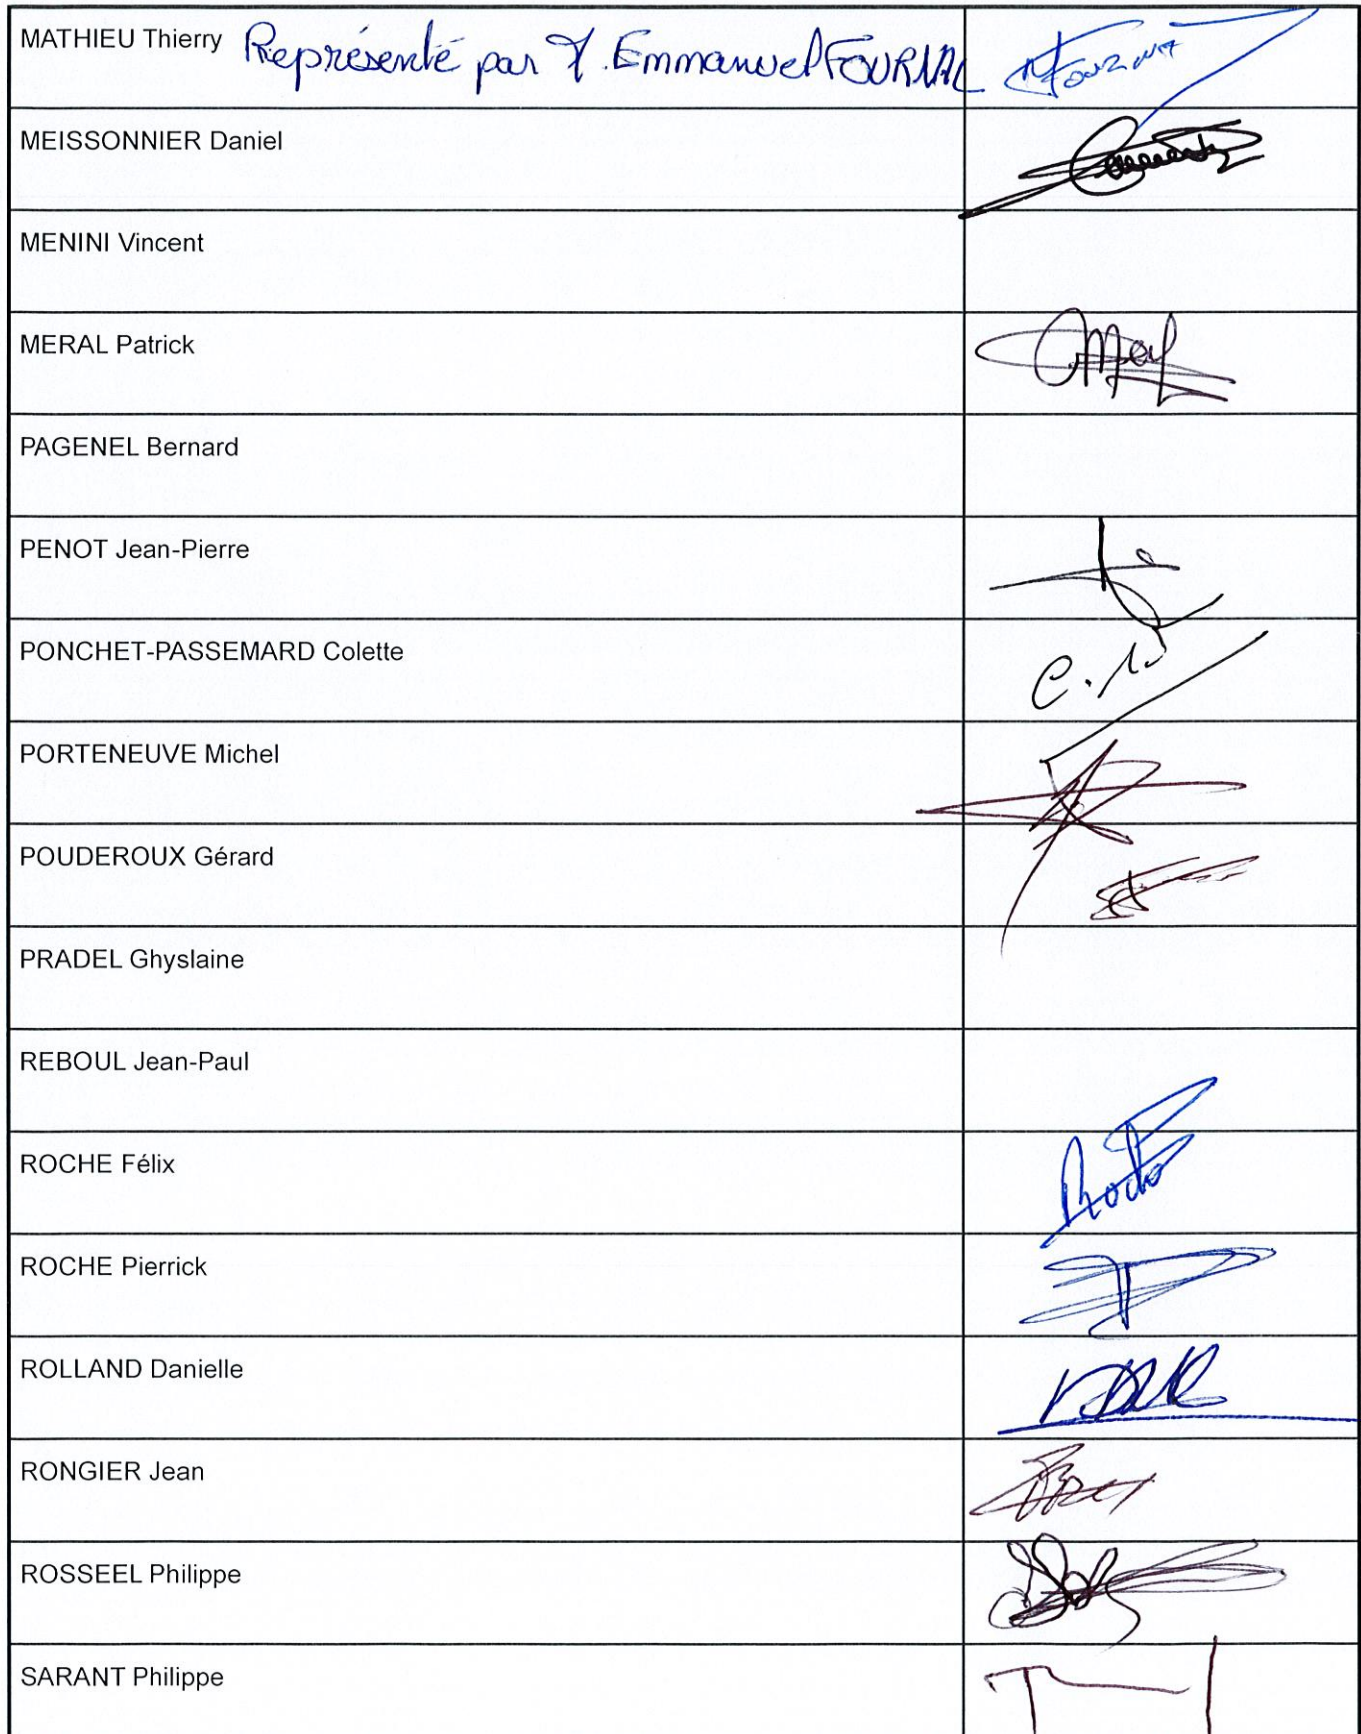 MATHIEU Thierry Représenté par M. Emmanuel FOURNAL
MEISSONNIER Daniel
MENINI Vincent
MERAL Patrick
PAGENEL Bernard
PENOT Jean-Pierre
PONCHET-PASSEMARD Colette
PORTENEUVE Michel
POUDEROUX Gérard
PRADEL Ghyslaine
REBOUL Jean-Paul
ROCHE Félix
ROCHE Pierrick
ROLLAND Danielle
RONGIER Jean
ROSSEEL Philippe
SARANT Philippe